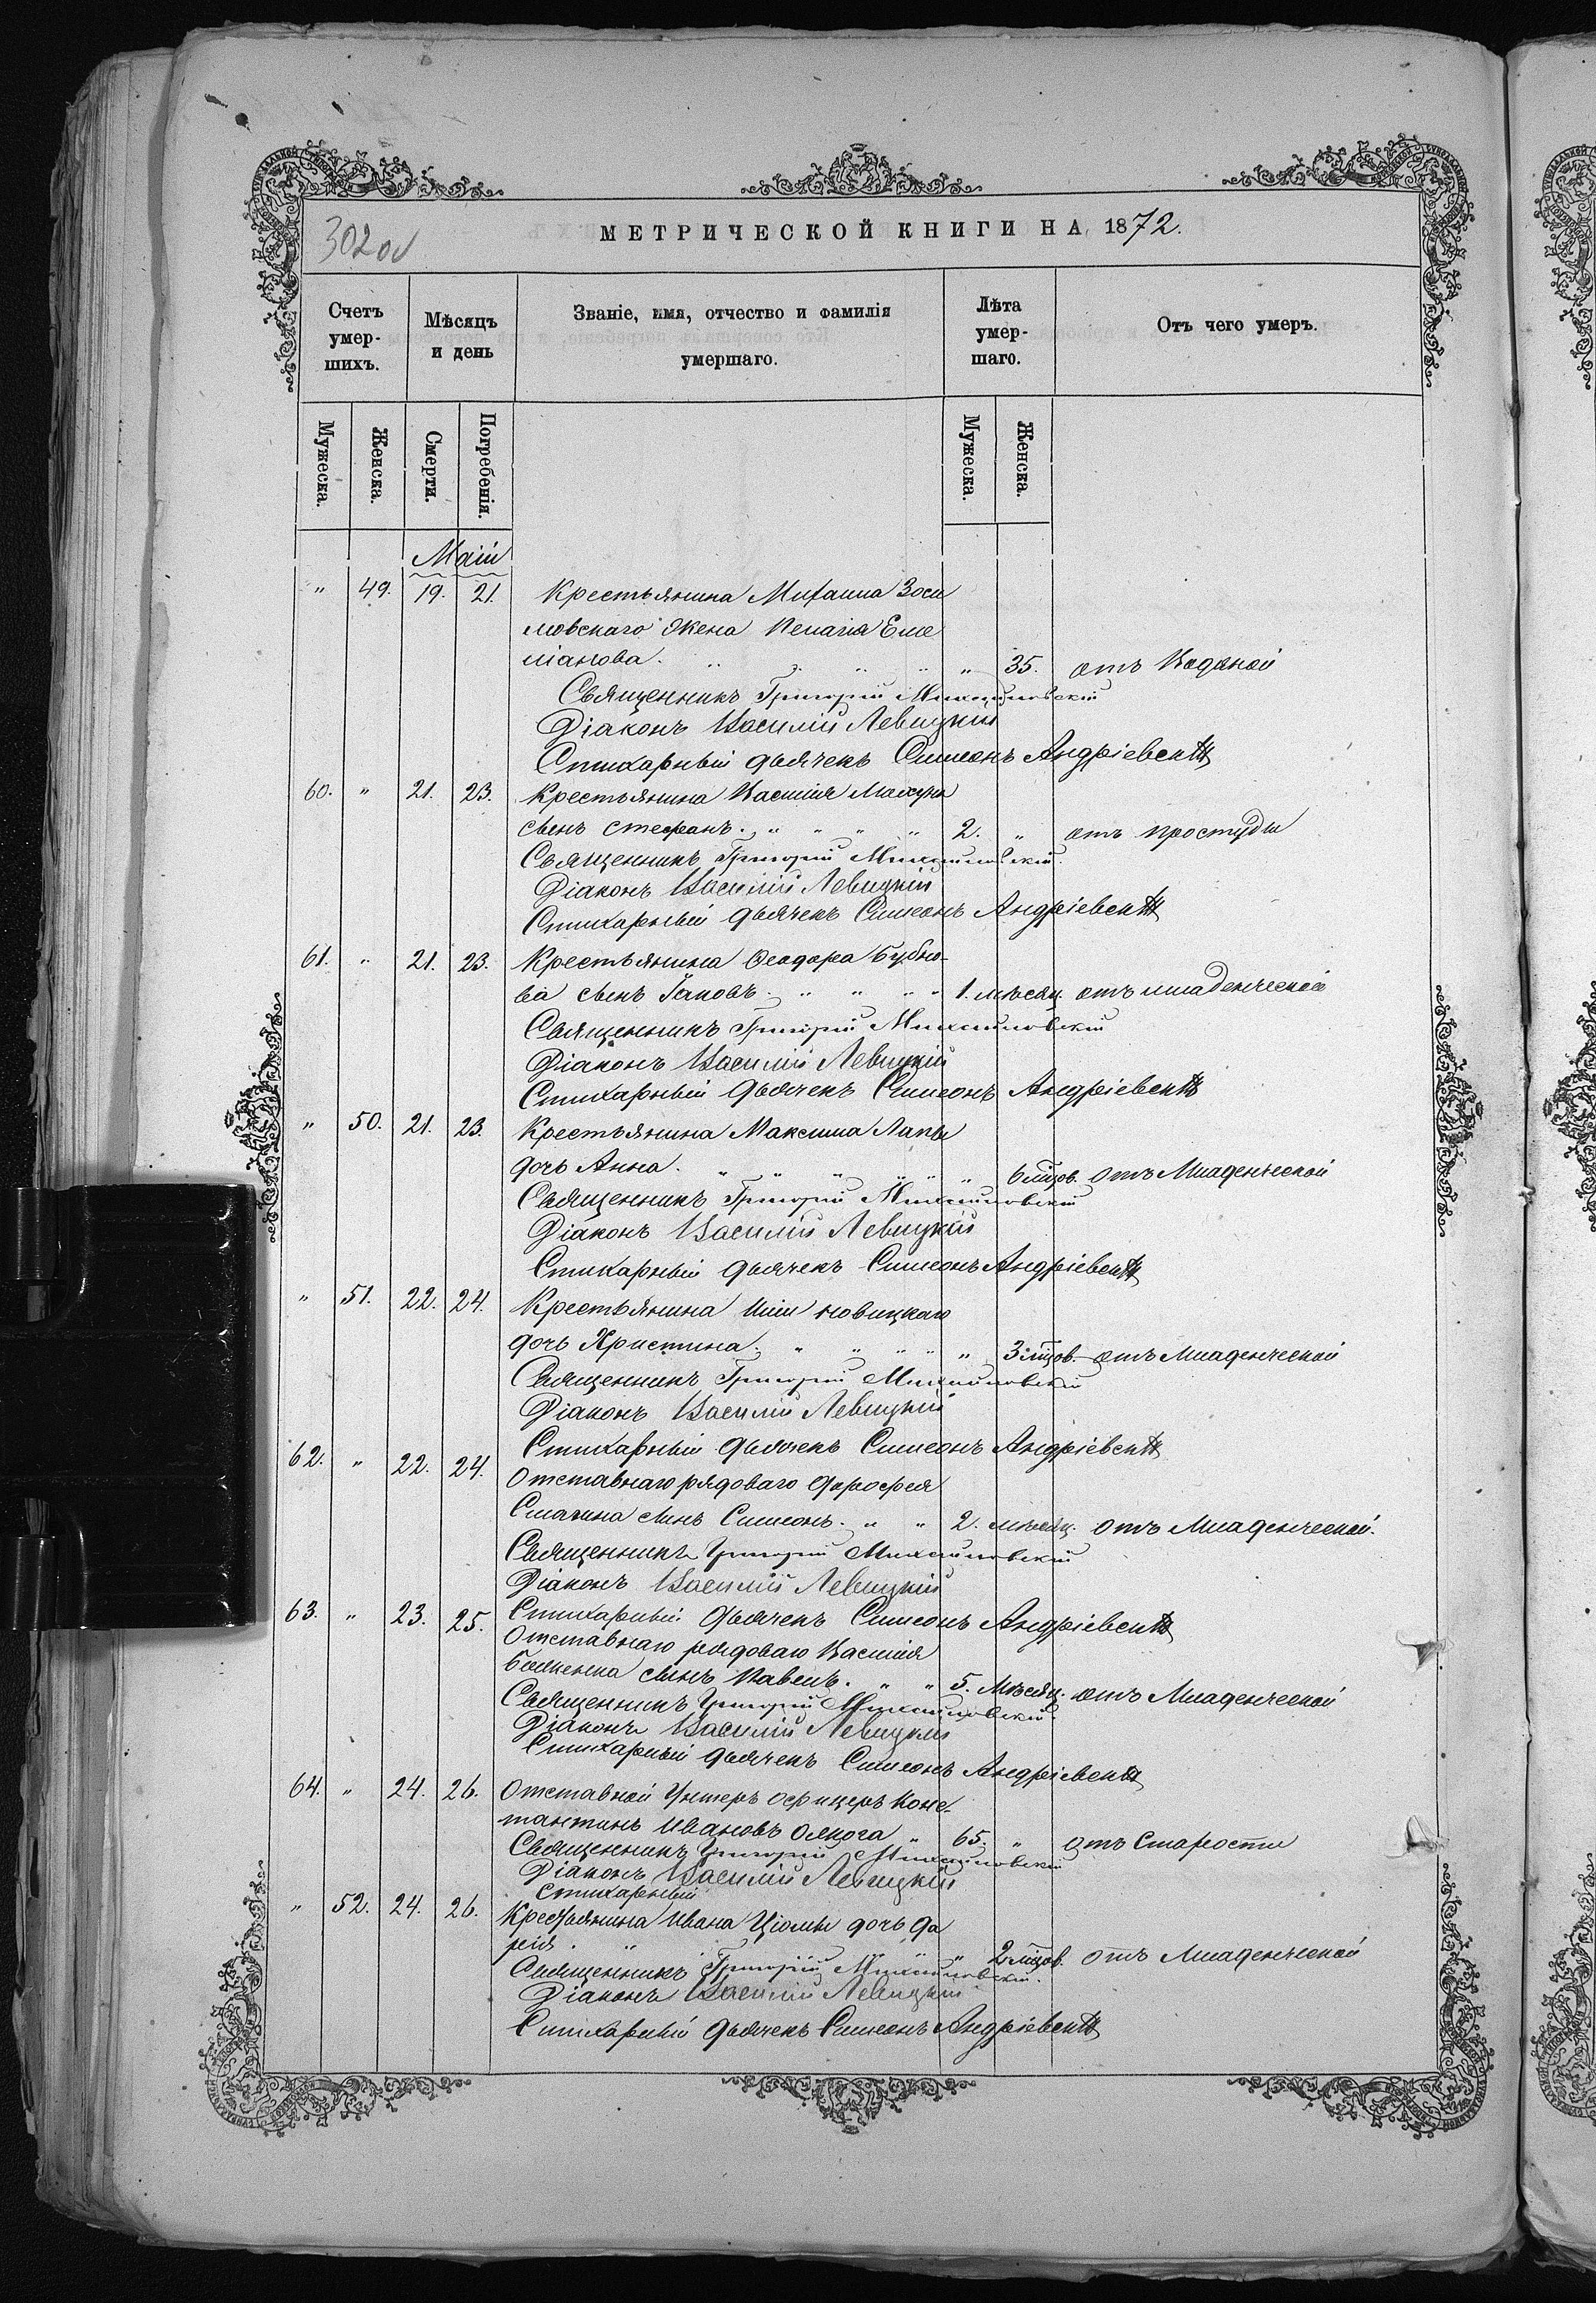 302 об
МЕТРИЧЕСКОЙ КНИГИ НА 1872.
Счетъ умер-шихъ. Мѣсяцъ и день Званіе, имя, отчество и фамилія умершаго. Лѣта умер-шаго. Отъ чего умеръ.
Мужеска. Женска. Смерти. Погребенія. Мужеска. Женска.
Маій
" 49. 19. 21. Крестьянина Михаила Зоси
мовскаго жена Пелагія Еме
ліанова. " 35. отъ Водяной
Священникъ Григорій Михайловскій
Діаконъ Василій Левицкій
Стихарный дьячекъ Симеонъ Андріевскій
60. " 21. 23. Крестьянина Василія
сынъ Стефанъ. " " " " 2. " отъ простуды
Священникъ Григорій Михайловскій.
Діаконъ Василій Левицкій
Стихарный дьячекъ Симеонъ Андріевскій
61. " 21. 23. Крестьянина Ѳеодора Бубно-
ва сынъ Іаковъ. " " " " 1. мѣсяц. отъ младенческой
Священникъ Григорій Михайловскій
Діаконъ Василій Левицкій
Стихарный дьячекъ Симеонъ Андріевскій
" 50. 21. 23. Крестьянина Максима Лапы
дочь Анна. " " " " " " 6 мцов. отъ Младенческой
Священникъ Григорій Михайловскій
Діаконъ Василій Левицкій
Стихарный дьячекъ Симеонъ Андріевскій
" 51. 22. 24. Крестьянина Иліи Новицкаго
дочь Христина. " " " " " 3 мцов. отъ Младенческой
Священникъ Григорій Михайловскій
Діаконъ Василій Левицкій
Стихарный дьячекъ Симеонъ Андріевскій
62. " 22. 24. Отставнаго рядоваго Дорофея
сынъ Симеонъ. " " 2. мѣсяц. отъ Младенческой.
Священникъ Григорій Михайловскій
Діаконъ Василій Левицкій
Стихарный дьячекъ Симеонъ Андріевскій
63. " 23. 25. Отставнаго рядоваго Василія
сынъ Павелъ. " " 5. Мѣсяц. отъ Младенческой
Священникъ Григорій Михайловскій.
Діаконъ Василій Левицкій
Стихарный дьячекъ Симеонъ Андріевскій
64. " 24. 26. Отставной Унтеръ Офицеръ Конс-
тантинъ Ивановъ " 65. " отъ Старости
Священникъ Григорій Михайловскій
Діаконъ Василій Левицкій
Стихарный
" 52. 24. 26. Крестьянина Ивана Ціомы дочь Да
рія. " " " " 2 мцов. отъ Младенческой
Священникъ Григорій Михайловскій.
Діаконъ Василій Левицкій
Стихарный дьячекъ Симеонъ Андріевскій